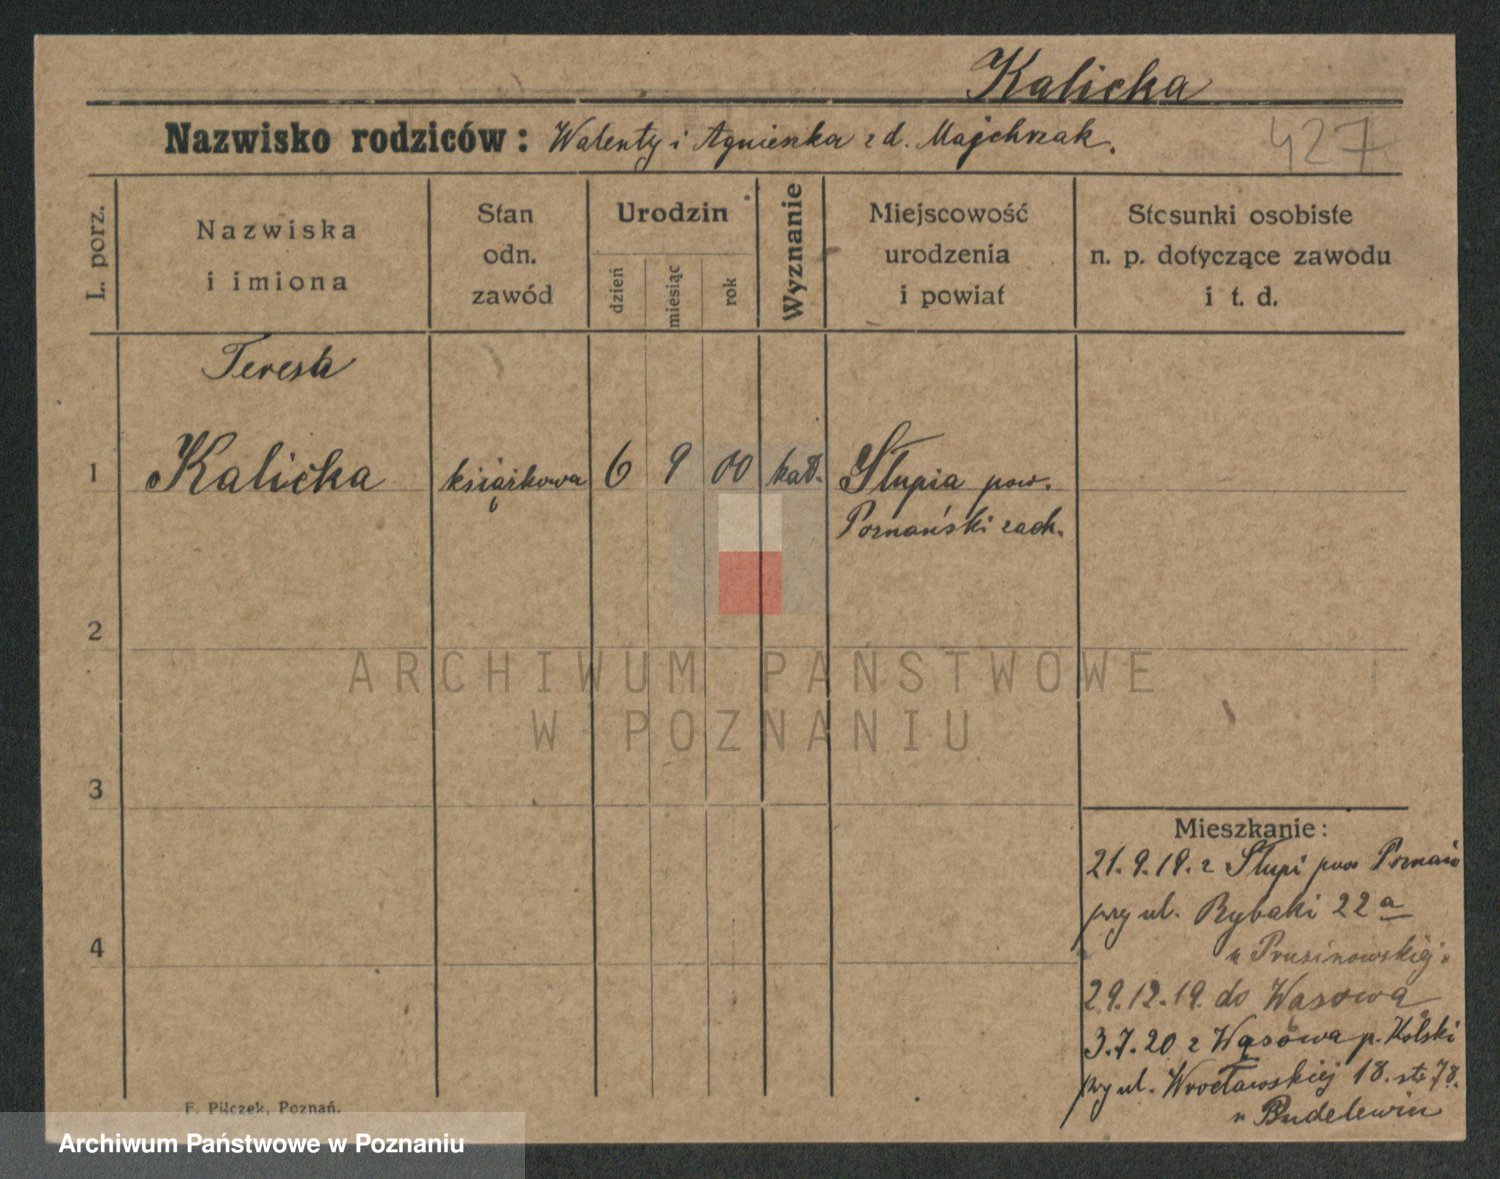 Kalicka
Nazwisko rodziców: Walenty i Agnieszka z d. Majchrzak.
427
L. porz.
Nazwiska
i imiona
Stan
odn.
zawód
Urodzin
dzień
miesiąc
rok
Wyznanie
Miejscowość
urodzenia
i powiat
Stosunki osobiste
n. p. dotyczące zawodu
i t. d.
Teresa
1 Kalicka książkowa 6 9 00 kat. Słupia pow.
Poznański zach.
2
ARCHIWUM PAŃSTWOWE
W POZNANIU
3
Mieszkanie:
21.9.18. z Słupi pow Poznań
przy ul. Rybaki 22 a
u Prusinowskiéj.
4
29.12.19. do Wąsowa
3.7.20 z Wąsowa p.
przy ul. Wrocławskiéj 18.
u Budelewin
F. Pilczek, Poznań.
Archiwum Państwowe w Poznaniu